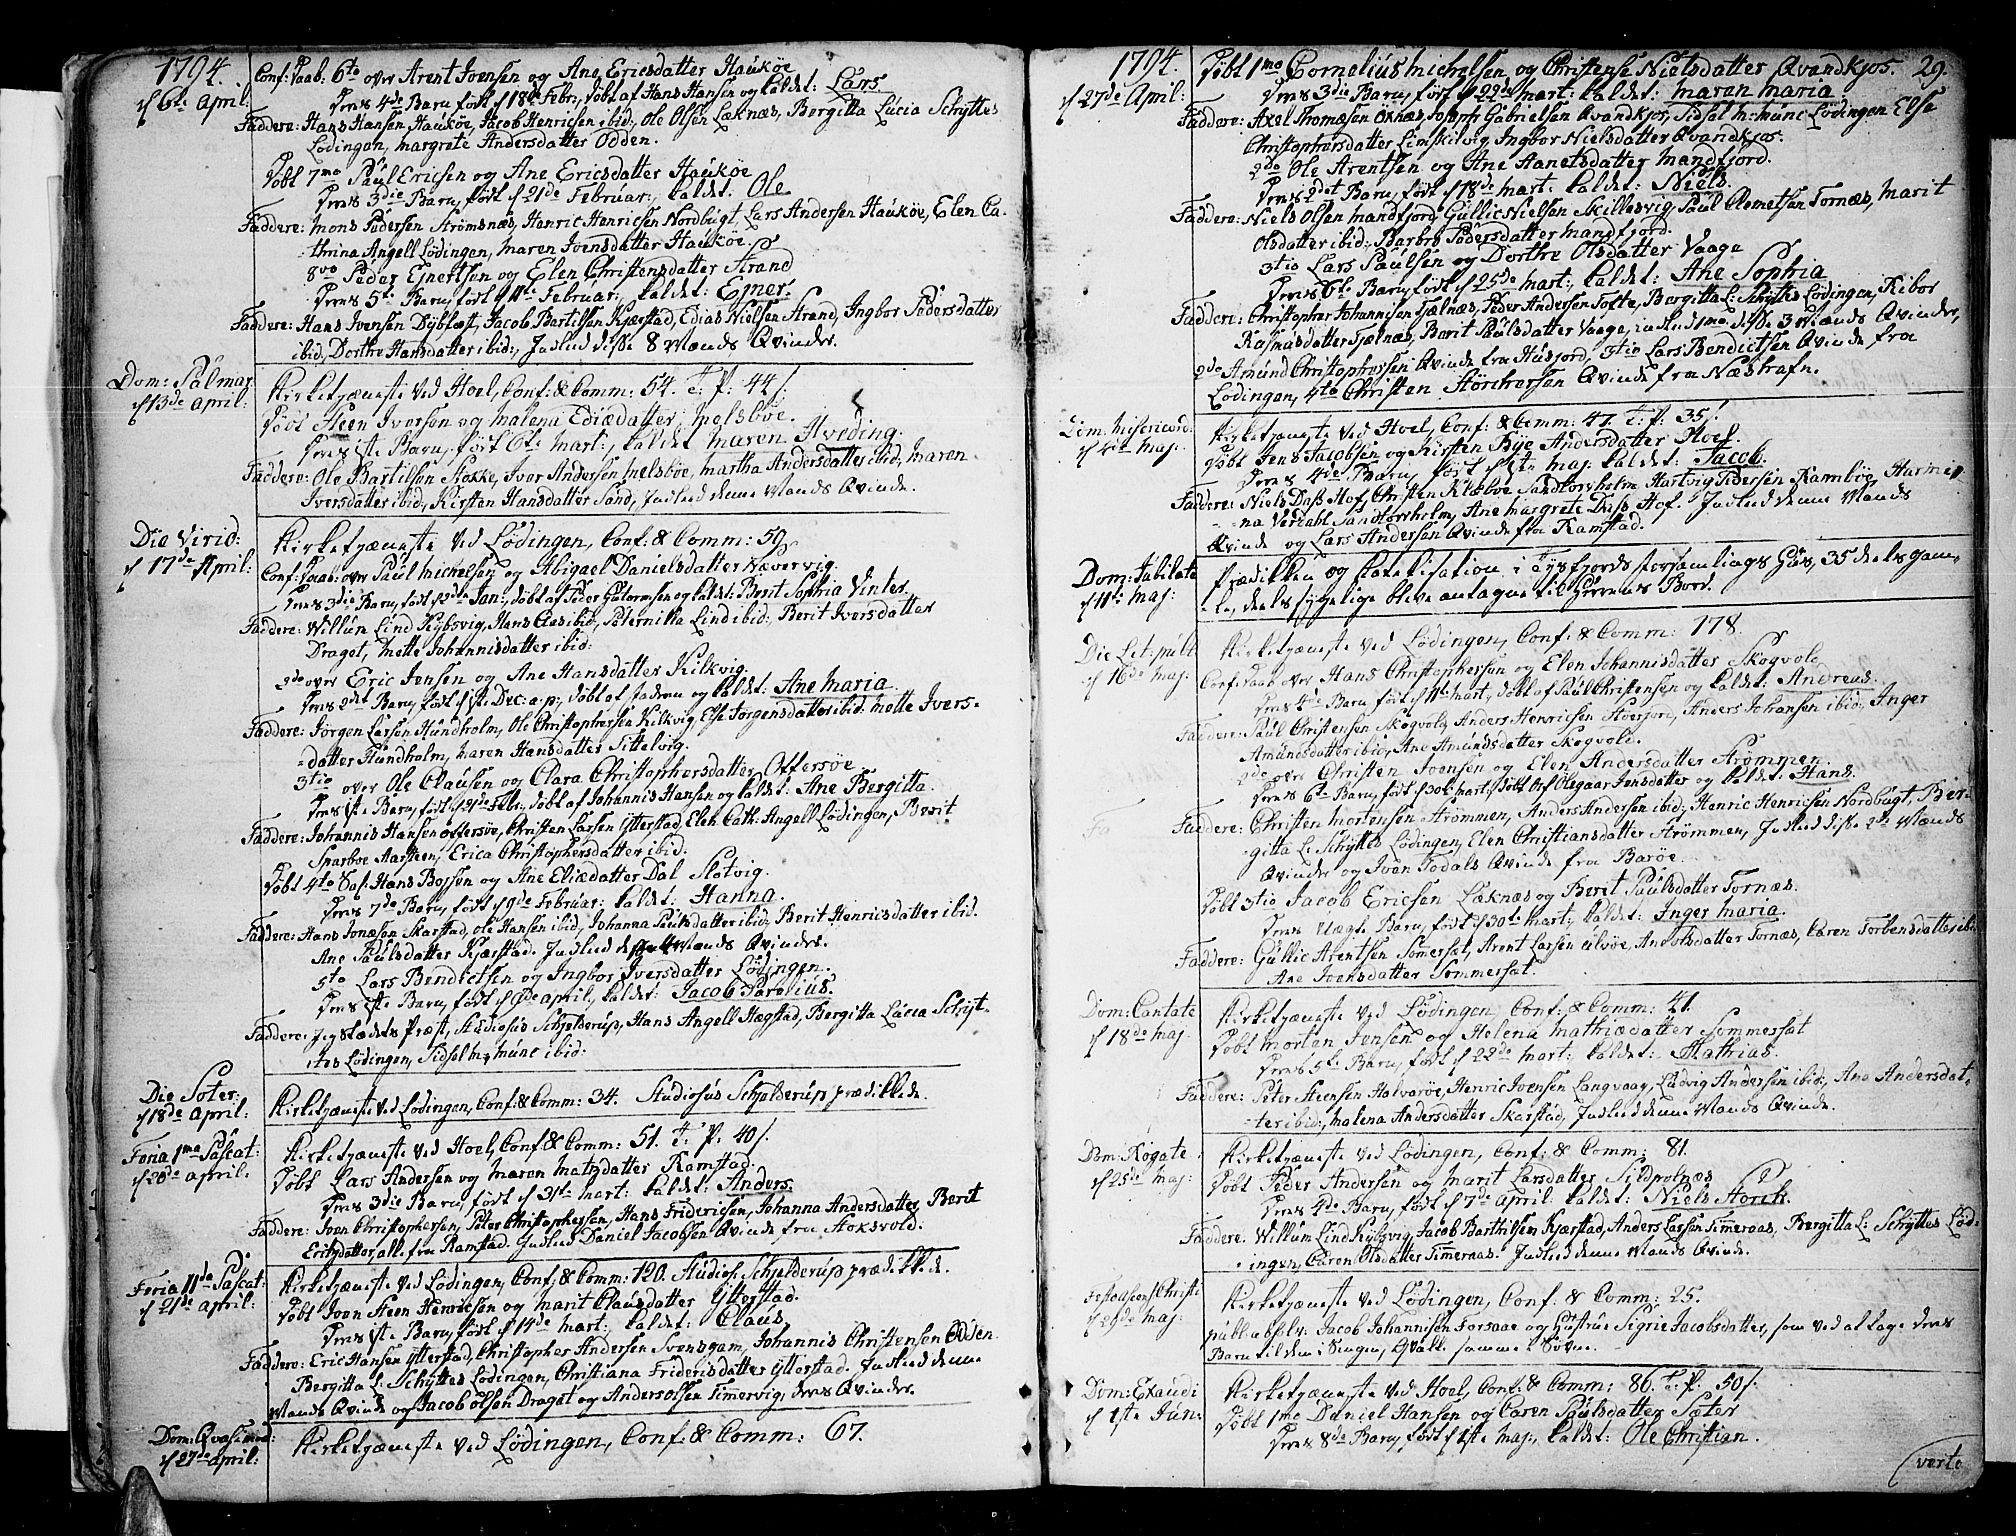 1794.
d 6te April:
Conf: Daab: 6to over Arent Ivensen og Ane Ericsdatter Haukøe
Deres 4de Barn, født d 18de Febr:, døbt af Hans Hansen og kaldet: Lars
Faddere: Hans Hansen Haukøe, Jacob Henricsen ibid:, Ole Olsen Læknæs, Bergitta Lucia Schÿttes
Lødingen, Margrete Andersdatter Odden.
Døbt 7mo Paul Ericsen og Ane Ericsdatter Haukøe
Deres 3die Barn, født d 21de Februar, kaldet: Ole
Faddere: Mons Pedersen Strømsnæs, Henric Henricsen Nordbugt, Lars Andersen Haukøe, Elen Ca-
thrina Angell Lødingen, Maren Ivensdatter Haukøe.
8vo Peder Ejnertsen og Elen Christensdatter Strand
Deres 5te Barn, født d 11te Februar, kaldet: Ejner.
Faddere: Hans Ivensen Dÿbfæst, Jacob Bartilsen Kjærstad, Edias Nielsen Strand, Ingbor Pedersdatter
ibid, Dorthe Hansdatter ibid:, Indled disse 8 Mænds Qvinder.
Dom: Palmar:
d 13de April:
Kirketjæneste ved Hoel, Conf: & Comm: 54. T. P: 44 s.
Døbt Steen Iversen og Malena Ediædatter Melsbøe.
Deres 1ste Barn, født 6te Mart:, kaldet Maren Hveding.
Faddere: Ole Bartilsen Stokke, Iver Andersen Melsbøe, Martha Andersdatter ibid:, Maren
Iversdatter ibid:, Kirsten Hansdatter Sand, Indled denne Mands Qvinde.
Die Virid:
d 17de April:
Kirketjæneste ved Lødingen, Conf: & Comm: 59.
Conf: Daab: over Paul Michelsen og Abigael Danielsdatter Nævervig.
Deres 3die Barn, født d 2de Jan:, døbt af Peder Guttormsen og kaldet: Berit Sophia Vinter.
Faddere: Willum Lind Kybsvig, Hans Aas ibid, Petternilla Lind ibid:, Berit Iversdatter
Draget, Mette Johannisdatter ibid:
2do over Eric Jensen og Ane Hansdatter Kilkvig.
Deres 2det Barn, født d 1ste Dec: a: p:, døbt af Faderen og kaldet: Ane Maria.
Faddere: Jørgen Larsen Hundholm, Ole Christophersen Kilkvig, Else Jørgensdatter ibid: Mette Ivers-
datter Hundholm, Maren Hansdatter Tittelvig.
3tio over Ole Clausen og Clara Christophersdatter Offersøe.
Deres 1ste Barn, født d 21de Febr:, døbt af Johannis Hansen og kaldet: Ane Bergitta.
Faddere: Johannis Hansen Offersøe, Christen Larsen Ytterstad, Elen Cath: Angell Lødingen, Berit
Sparboe Aarsteen, Erica Christophersdatter ibid:
Døbt 4to Sal: Hans Bossen og Ane Eliædatter Dal Slotvig.
Deres 7de Barn, født d 9de Februar: kaldet: Hanna.
Faddere: Hans Jonæsen Skarstad, Ole Hansen ibid, Johanna Paulsdatter ibid:, Berit Henricsdatter ibid.
Ane Paulsdatter Kjærstad. Indled Mands Qvinder.
5to Lars Bendictsen og Ingbor Iversdatter Lødingen.
Deres 1ste Barn, født d 9de April, kaldet: Jacob Parelius.
Faddere: Jeg Stædets Præst, Studiosus Schjelderup, Hans Angell Hægstad, Bergitta Lucia Schÿt-
tes Lødingen, Sidsel M: Munc ibid:
Die Poter:
d 18de April:
Kirketjæneste ved Lødingen, Conf: & Comm: 34. Studiosus Schjelderup prædikkede.
Feria 1ma Pascat:
d 20de April:
Kirketjæneste ved Hoel, Conf: & Comm: 51. T. P: 40 s.
Døbt Lars Andersen og Maren Matsdatter Ramstad.
Deres 3die Barn, født d 31te Mart: kaldet: Anders.
Faddere: Iven Christophersen, Peter Christophersen, Hans Fridericsen, Johanna Andersdatter, Berit
Ericsdatter, alle fra Ramstad. Indled Daniel Jacobsen Qvinde fra Stoksvold.
Feria 11da Pascat:
d 21de April:
Kirketjæneste ved Lødingen, Conf: & Comm: 120. Studios: Schjelderup prædikkede.
Døbt Iven Steen Henricsen og Marit Clausdatter Ytterstad.
Deres 1ste Barn, født d 14de Mart:, kaldet: Claus.
Faddere: Eric Hansen Ytterstad, Christopher Andersen Svensgam, Johannis Christensen Odden
Bergitta L: Schÿttes Lødingen, Christiana Fridericsdatter Ytterstad. Indled denne
Mands Qvinde og Jacob Olsen Draget og Anders Olsen Timmervig, deres Qvinder.
Dom: Qvasimod:
d 27de April:
Kirketjæneste ved Lødingen, Conf: & Comm: 67.
1794.
29.
d 27de April:
Døbt 1mo Cornelius Michelsen og Christense Nielsdatter Qvandkjos.
Deres 3die Barn, født d 22de Mart: kaldet: Maren Maria
Faddere: Axel Thomæsen Oxnæs, Joseph Gabrielsen Qvandkjos, Sidsel M: Munc Lødingen Else
Christophersdatter Limskilvig, Ingbor Nielsdatter Qvandkjos.
2do Ole Arentsen og Ane Aanetsdatter Mandfjord.
Deres 2det Barn, født d 18de Mart: kaldet: Niels.
Faddere: Niels Olsen Mandfjord, Gullic Nielsen Skillesvig, Paul Clemetsen Tornæs, Marit
Olsdatter ibid:, Barbro Pedersdatter Mandfjord.
3tio Lars Paulsen og Dorthe Olsdatter Vaage
Deres 6te Barn, født d 25de Mart: kaldet: Ane Sophia
Faddere: Christopher Johannisen Fjælnæs, Peder Andersen Tofte, Bergitta L: Schÿttes Lødingen, Kibor
Rasmusdatter Fjælnæs, Berit Paulsdatter Vaage, indled 1mo disse 3 Mænds Qvinder,
2do Amund Christophersen Qvinde fra Husjord, 3tio Lars Bendictsen Qvinde fra
Lødingen, 4to Christen Størchersen Qvinde fra Næshafn.
Dom: Misericord:
d 4de Maj:
Kirketjæneste ved Hoel, Conf: & Comm: 47. T: P: 35 s.
Døbt Jens Jacobsen og Kirsten Bye Andersdatter Hoel.
Deres 4de Barn, født d 1ste Maj: kaldet: Jacob.
Faddere: Niels Dass Hof, Christen Klæboe Sandtorvholm, Hartvig Pedersen Rambøe, Harmi-
na Verdabl Sandtorvholm, Ane Margrete Dass Hof. Indled denne Mands
Qvinde og Lars Andersen Qvinde fra Ramstad.
Dom: Jubilate
d 11te Maj:
Prædikken og Catechisation i Tysfjords forsamlings Huus, 35 deels gam-
le, deels sygelige bleve antagne til Herrens Bord.
Die Let: pult
d 16de Maj:
Kirketjæneste ved Lødingen, Conf: & Comm: 178.
Conf: Daab over Hans Christophersen og Elen Johannisdatter Skogvold.
Deres Barn, født d 11te Mart, døbt af Paul Christensen og kaldet: Andreas.
Faddere: Paul Christensen Skogvold, Anders Henricsen Stverfjord, Anders Johansen ibid:, Anger
Amundsdatter ibid:, Ane Amundsdatter Skogvold.
2do over Christen Ivensen og Elen Andersdatter Strømmen.
Deres 6te Barn, født d 30te Mart, døbt af Olegaar Jensdatter og kaldet: Hans.
Faddere: Christen Mortensen Strømmen, Anders Andersen ibid:, Henric Henricsen Nordbugt, Ber-
gitta L: Schÿttes Lødingen, Elen Christiansdatter Strømmen, Indled disse 2de Mænds
Qvinder og Iven Todals Qvinde fra Barøe.
Døbt 3tio Jacob Ericsen Læknæs og Berit Paulsdatter Tornæs.
Deres Uægte Barn, født d 30te Mart:, kaldet: Inger Maria.
Faddere: Gullic Arentsen Sommerset, Arent Larsen Ulvøe, Ane Olsdatter Tornæs, Caren Torbensdatter ibid:
Ane Ivensdatter Sommerset.
Dom: Cantate
d 18de Maj:
Kirketjæneste ved Lødingen, Conf: & Comm: 41.
Døbt Morten Jensen og Helena Mathiædatter Sommerset
Deres 5te Barn, født d 22de Mart:, kaldet: Mathias.
Faddere: Peter Steensen Halvarøe, Henric Ivensen Langvaag, Ludvig Andersen ibid:, Ane Andersdat-
ter ibid:, Malena Andersdatter Skarstad, Indled denne Mands Qvinde.
Dom: Rogate
d 25de Maj:
Kirketjæneste ved Lødingen, Conf: & Comm: 81.
Døbt Peder Andersen og Marit Larsdatter Sildpolnæs
Deres 4de Barn, født d 7de April kaldet: Niels Storch.
Faddere: Willum Lind Kybsvig, Jacob Barthilsen Kjærstad, Anders Larsen Timmeraas, Bergitta L: Schÿttes Lød-
ingen, Caren Olsdatter Timmeraas. Indled denne Mands Qvinde.
Fest: ascens: Christi
d 29de Maj:
Kirketjæneste ved Lødingen, Conf: & Comm: 25.
publ: absolv: Jacob Johannisen Forsaae og Hustrue Sigrie Jacobsdatter, som ved at tage deres
Barn til dem i Sengen, Qvalte samme i Søvne.
Dom: Exaudi
d 1ste Jun:
Kirketjæneste ved Hoel, Conf: & Comm: 86. T: P: 50 s.
Døbt 1mo Daniel Hansen og Caren Paulsdatter Sæter
Deres 8de Barn, født d 1ste Maj:, kaldet: Ole Christian.
verte